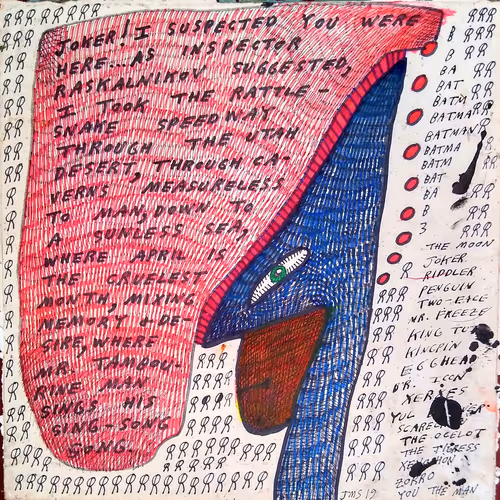 JOKER! I SUSPECTED YOU WERE
HERE... AS INSPECTOR
RASKALNIKOV SUGGESTED,
I TOOK THE RATTLE-
SNAKE SPEEDWAY
THROUGH THE UTAH
DESERT, THROUGH CA-
VERNS MEASURELESS
TO MAN, DOWN TO
A SUNLESS SEA,
WHERE APRIL IS
THE CRUELEST
MONTH, MIXING
MEMORY & DE-
SIRE, WHERE
MR. TAMBOU-
RINE MAN
SINGS HIS
SING-SONG
SONG.
B
B
BA
BAT
BATM
BATMA
BATMAN
BATMA
BATM
BAT
BA
B
3
THE MOON
JOKER
RIDDLER
PENGUIN
TWO-FACE
MR. FREEZE
KING TUT
KINGPIN
EGGHEAD
DR. ICON
XERXES
YUL
SCARECROW
THE OCELOT
THE TIGRESS
ZORRO
YOU THE MAN
TMS 19